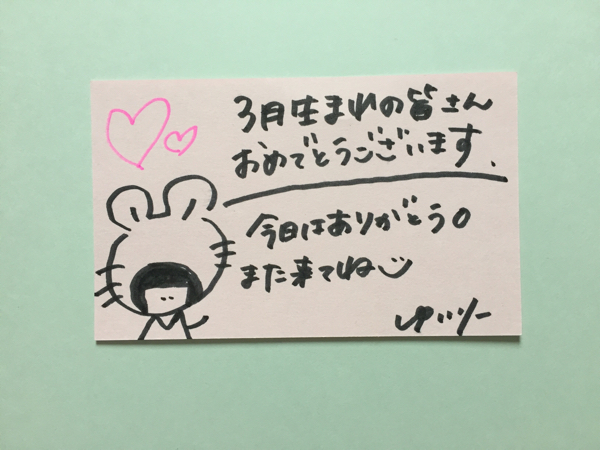 3月生まれの皆さん
おめでとうございます.
今日はありがとう。
また来てね